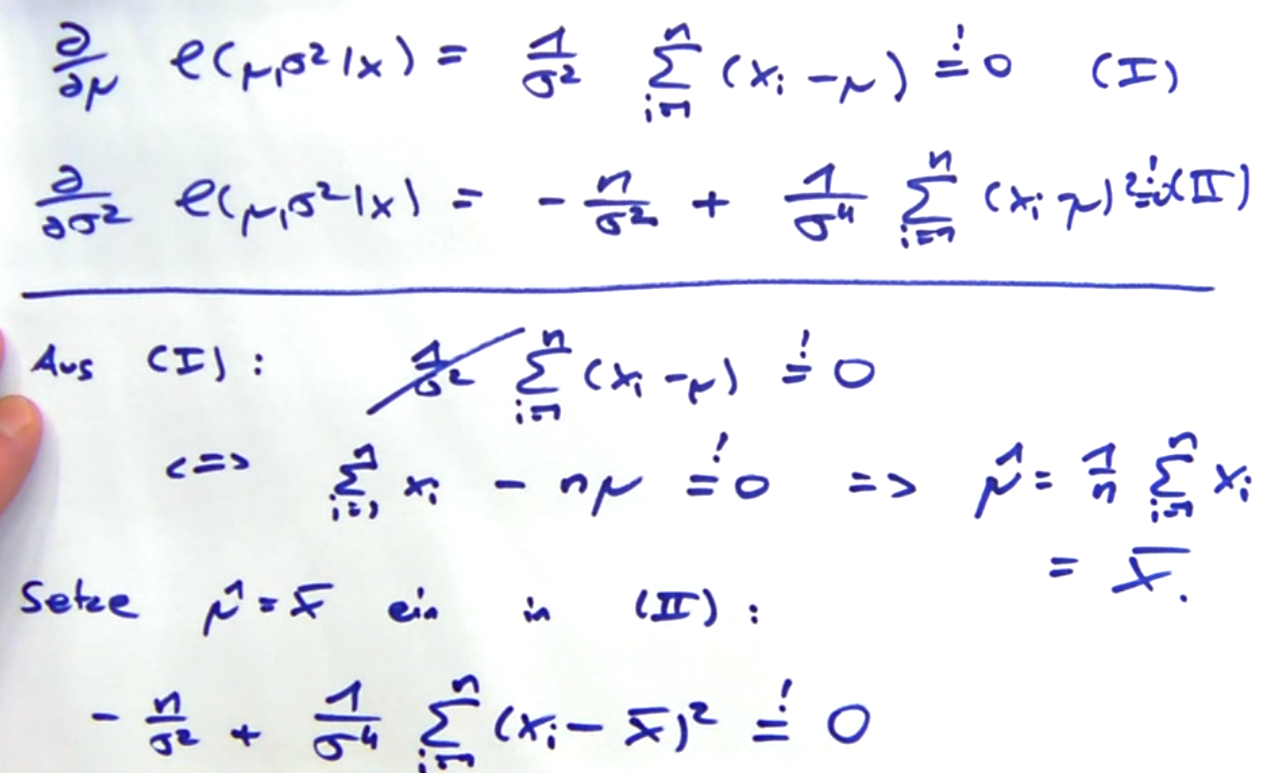 ∂/∂μ ℓ(μ,σ²|x) = 1/σ² ∑_{i=1}^{n} (xᵢ - μ) =! 0 (I)
∂/∂σ² ℓ(μ,σ²|x) = - n/σ² + 1/σ⁴ ∑_{i=1}^{n} (xᵢ - μ)² =! 0 (II)
Aus (I): 1/σ² ∑_{i=1}^{n} (xᵢ - μ) =! 0
<=> ∑_{i=1}^{n} xᵢ - nμ =! 0 => μ̂ = 1/n ∑_{i=1}^{n} xᵢ
= x̄.
Setze μ̂ = x̄ ein in (II):
- n/σ² + 1/σ⁴ ∑_{i=1}^{n} (xᵢ - x̄)² =! 0